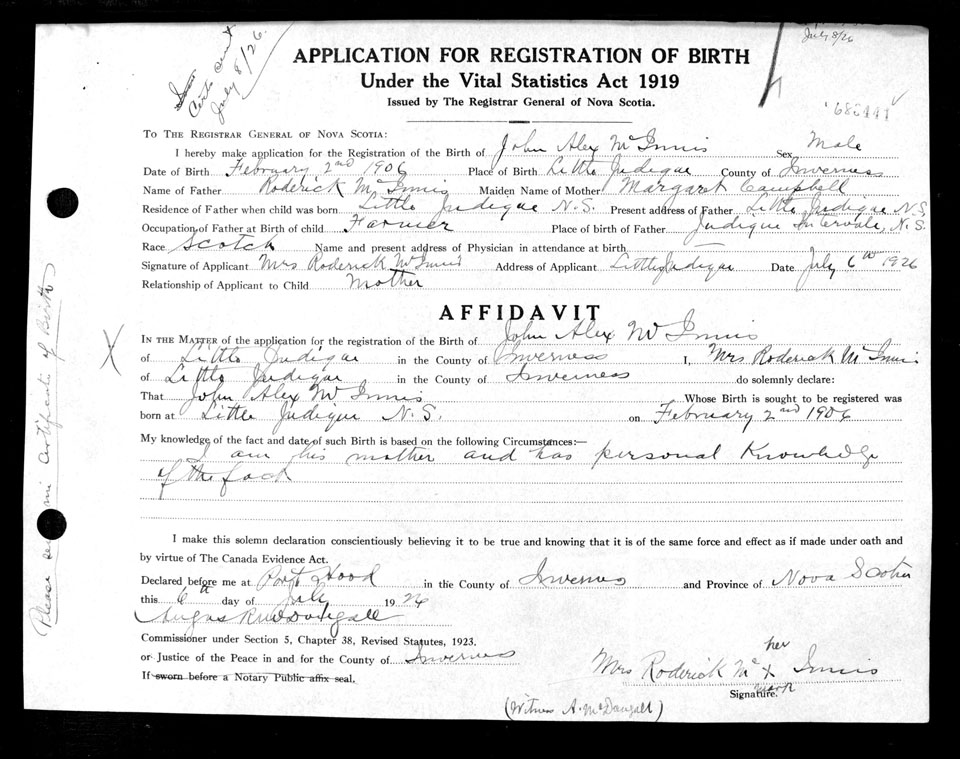 Certs sent
July 8/26
July 8/26
APPLICATION FOR REGISTRATION OF BIRTH
Under the Vital Statistics Act 1919
Issued by The Registrar General of Nova Scotia.
TO THE REGISTRAR GENERAL OF NOVA SCOTIA:
I hereby make application for the Registration of the Birth of John Alex McInnis Sex Male
Date of Birth February 2nd 1906 Place of Birth Little Judique County of Inverness
Name of Father Roderick McInnis Maiden Name of Mother Margaret Campbell
Residence of Father when child was born Little Judique N.S. Present address of Father Little Judique N.S.
Occupation of Father at Birth of child Farmer Place of birth of Father Judique Intervale, N.S.
Race Scotch Name and present address of Physician in attendance at birth —
Signature of Applicant Mrs Roderick McInnis Address of Applicant Little Judique Date July 6th 1926
Relationship of Applicant to Child Mother
AFFIDAVIT
IN THE MATTER of the application for the registration of the Birth of John Alex McInnis
of Little Judique in the County of Inverness I, Mrs Roderick McInnis
of Little Judique in the County of Inverness do solemnly declare:
That John Alex McInnis Whose Birth is sought to be registered was
born at Little Judique N.S. on February 2nd 1906
My knowledge of the fact and date of such Birth is based on the following Circumstances:—
I am his mother and has personal Knowledge
of the fact
I make this solemn declaration conscientiously believing it to be true and knowing that it is of the same force and effect as if made under oath and
by virtue of The Canada Evidence Act.
Declared before me at Port Hood in the County of Inverness and Province of Nova Scotia
this 6th day of July 1926
Angus R McDougall
Commissioner under Section 5, Chapter 38, Revised Statutes, 1923.
or Justice of the Peace in and for the County of Inverness
If sworn before a Notary Public affix seal.
her
Mrs Roderick Mc x Innis
mark
Signature.
(Witness A. McDougall)
Please send me Certificate of Birth